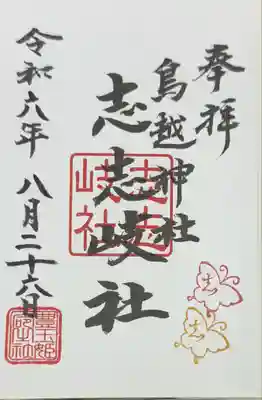 奉拝
鳥越神社
志志岐社
志志岐社
令和六年 八月二十六日
豊玉姫